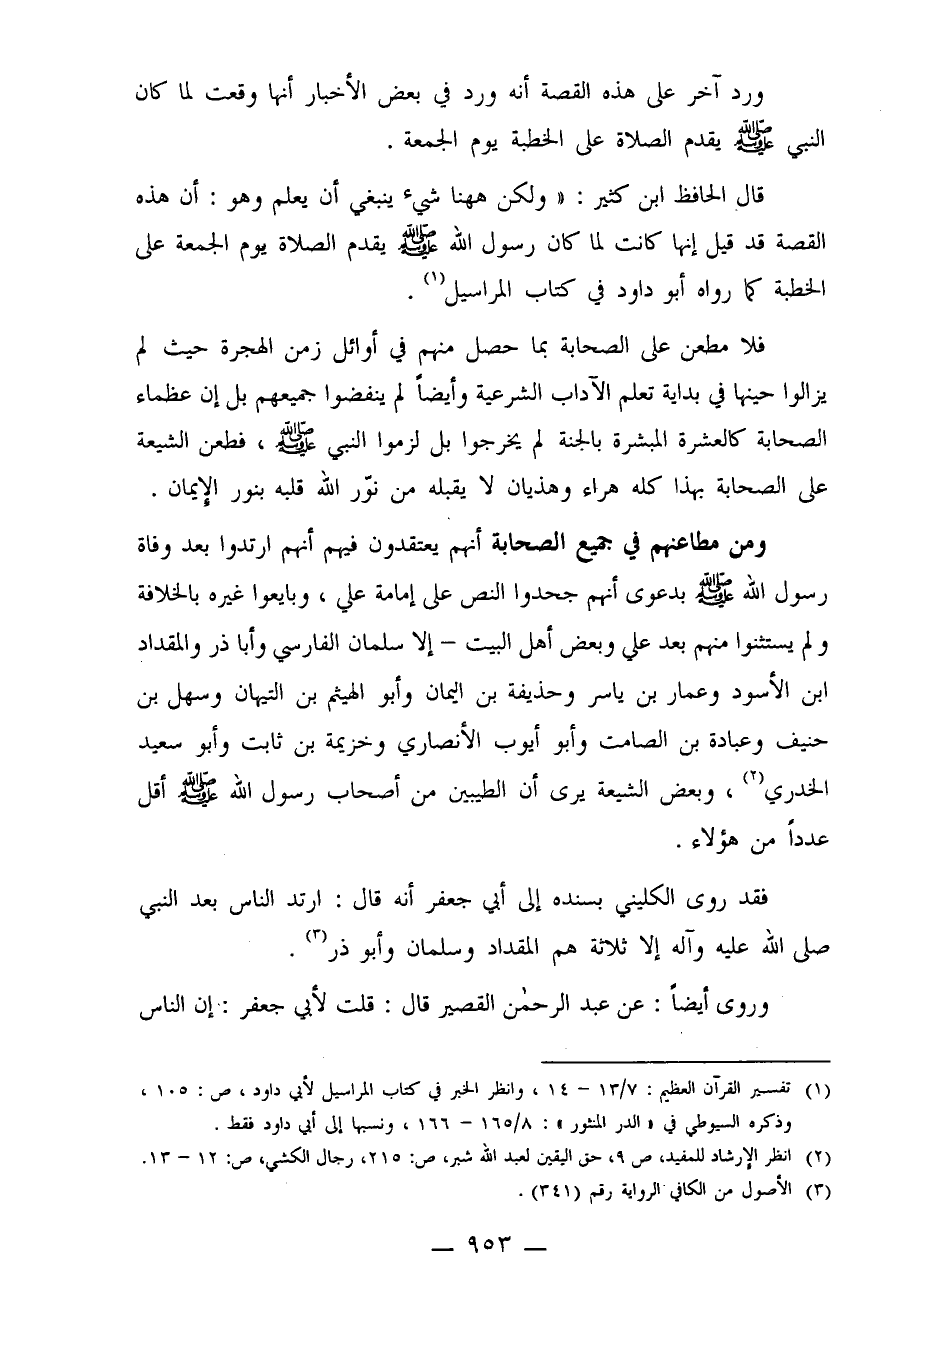 ورد آخر على هذه القصة أنه ورد في بعض الأخبار أنها وقعت لما كان
النبي ﷺ يقدم الصلاة على الخطبة يوم الجمعة .
قال الحافظ ابن كثير : « ولكن ههنا شيء ينبغي أن يعلم وهو : أن هذه
القصة قد قيل إنها كانت لما كان رسول الله ﷺ يقدم الصلاة يوم الجمعة على
الخطبة كما رواه أبو داود في كتاب المراسيل(١) .
فلا مطعن على الصحابة بما حصل منهم في أوائل زمن الهجرة حيث لم
يزالوا حينها في بداية تعلم الآداب الشرعية وأيضاً لم ينفضوا جميعهم بل إن عظماء
الصحابة كالعشرة المبشرة بالجنة لم يخرجوا بل لزموا النبي ﷺ ، فطعن الشيعة
على الصحابة بهذا كله هراء وهذيان لا يقبله من نوّر الله قلبه بنور الإيمان .
ومن مطاعنهم في جميع الصحابة أنهم يعتقدون فيهم أنهم ارتدوا بعد وفاة
رسول الله ﷺ بدعوى أنهم جحدوا النص على إمامة علي ، وبايعوا غيره بالخلافة
ولم يستثنوا منهم بعد علي وبعض أهل البيت – إلا سلمان الفارسي وأبا ذر والمقداد
ابن الأسود وعمار بن ياسر وحذيفة بن اليمان وأبو الهيثم بن التيهان وسهل بن
حنيف وعبادة بن الصامت وأبو أيوب الأنصاري وخزيمة بن ثابت وأبو سعيد
الخدري(٢) ، وبعض الشيعة يرى أن الطيبين من أصحاب رسول الله ﷺ أقل
عدداً من هؤلاء .
فقد روى الكليني بسنده إلى أبي جعفر أنه قال : ارتد الناس بعد النبي
صلى الله عليه وآله إلا ثلاثة هم المقداد وسلمان وأبو ذر(٣) .
وروى أيضاً : عن عبد الرحمٰن القصير قال : قلت لأبي جعفر : إن الناس
(١) تفسير القرآن العظيم : ١٣/٧ – ١٤ ، وانظر الخبر في كتاب المراسيل لأبي داود ، ص : ١٠٥ ،
وذكره السيوطي في « الدر المنثور » : ١٦٥/٨ – ١٦٦ ، ونسبها إلى أبي داود فقط .
(٢) انظر الإرشاد للمفيد، ص ٩، حق اليقين لعبد الله شبر، ص: ٢١٥، رجال الكشي، ص: ١٢ – ١٣.
(٣) الأصول من الكافي الرواية رقم (٣٤١) .
— ٩٥٣ —